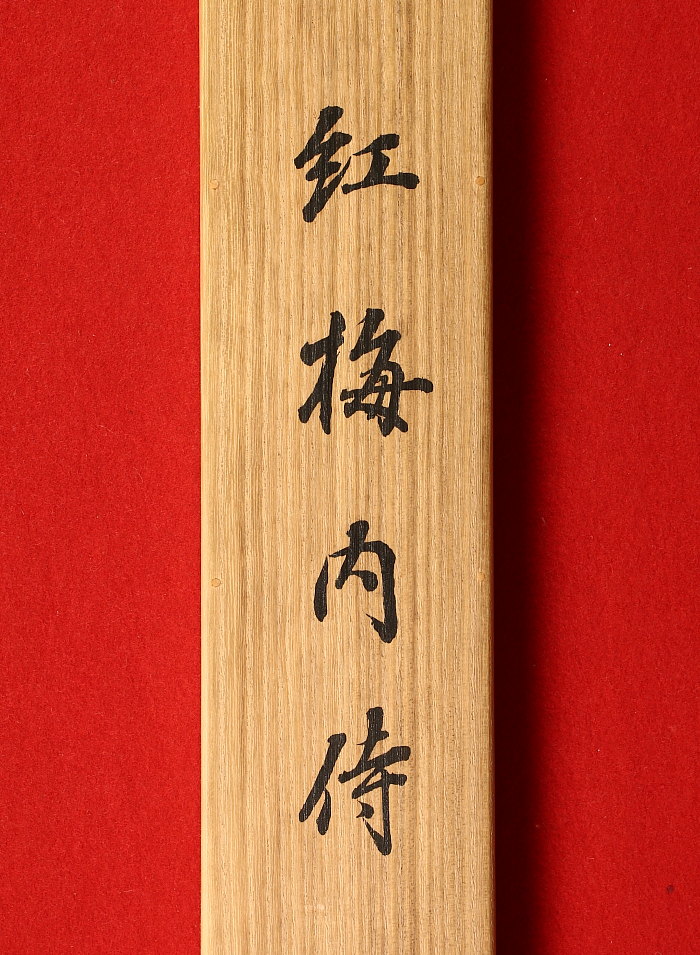 紅梅内侍